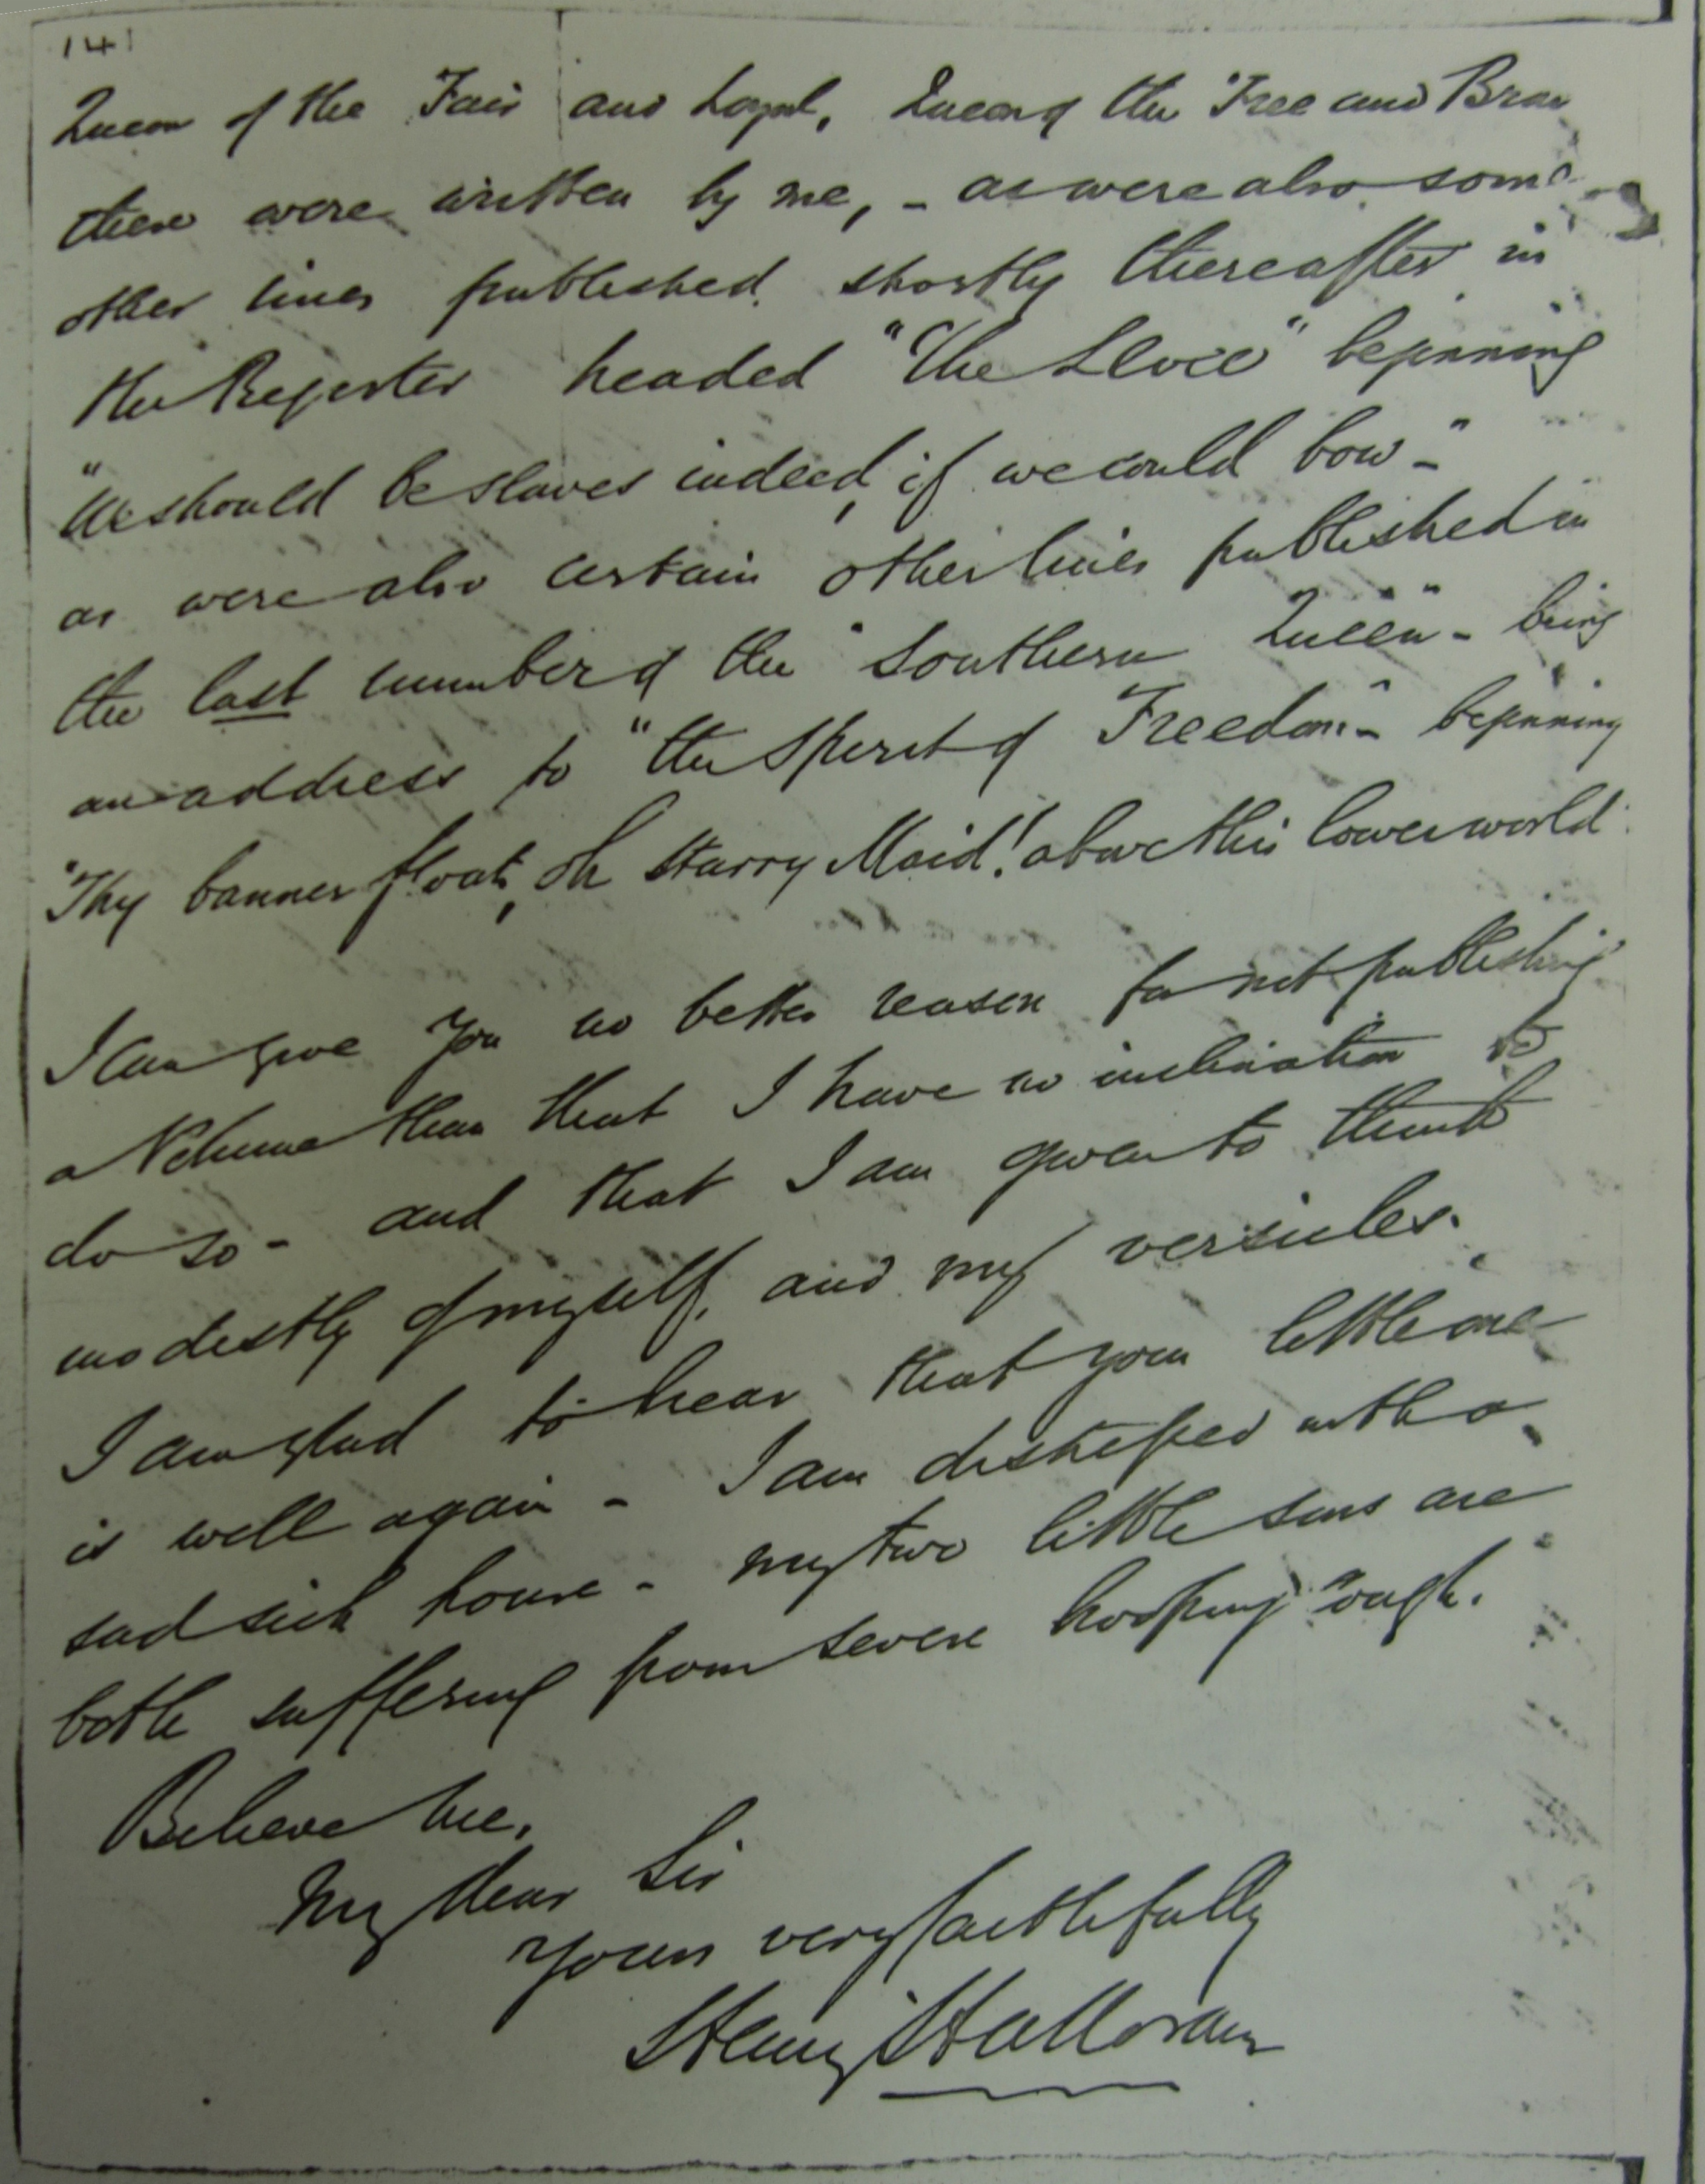 141
Queen of the Fair and Loyal, Queen of the Free and Brav
these were written by me, - as were also some
other lines published shortly thereafter in
the Register headed "The Slave" beginning
"We should be slaves indeed, if we could bow -"
as were also certain other lines published in
the last number of the "Southern Queen" - being
an address to "the Spirit of Freedom" - beginning
"Thy banner floats, oh Starry Maid! above this lower world
I can give you no better reason for not publishing
a Volume than that I have no inclination to
do so - and that I am given to think
modestly of myself, and my versicles.
I am glad to hear that your little one
is well again - I am distressed with a
sad sick house - my two little sons are
both suffering from severe hooping cough.
Believe me,
My dear Sir
Yours very faithfully
Henry Halloran